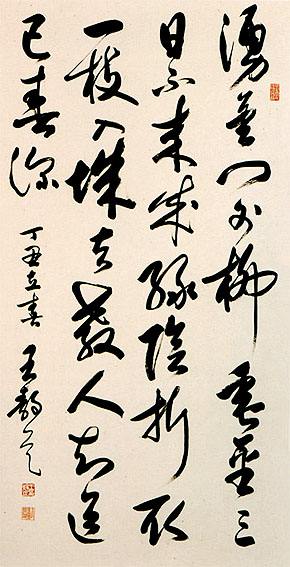 湧金門外柳垂金三
日不來成綠陰折取
一枝入城去教人知道
已春深 丁丑立春 王靜芝